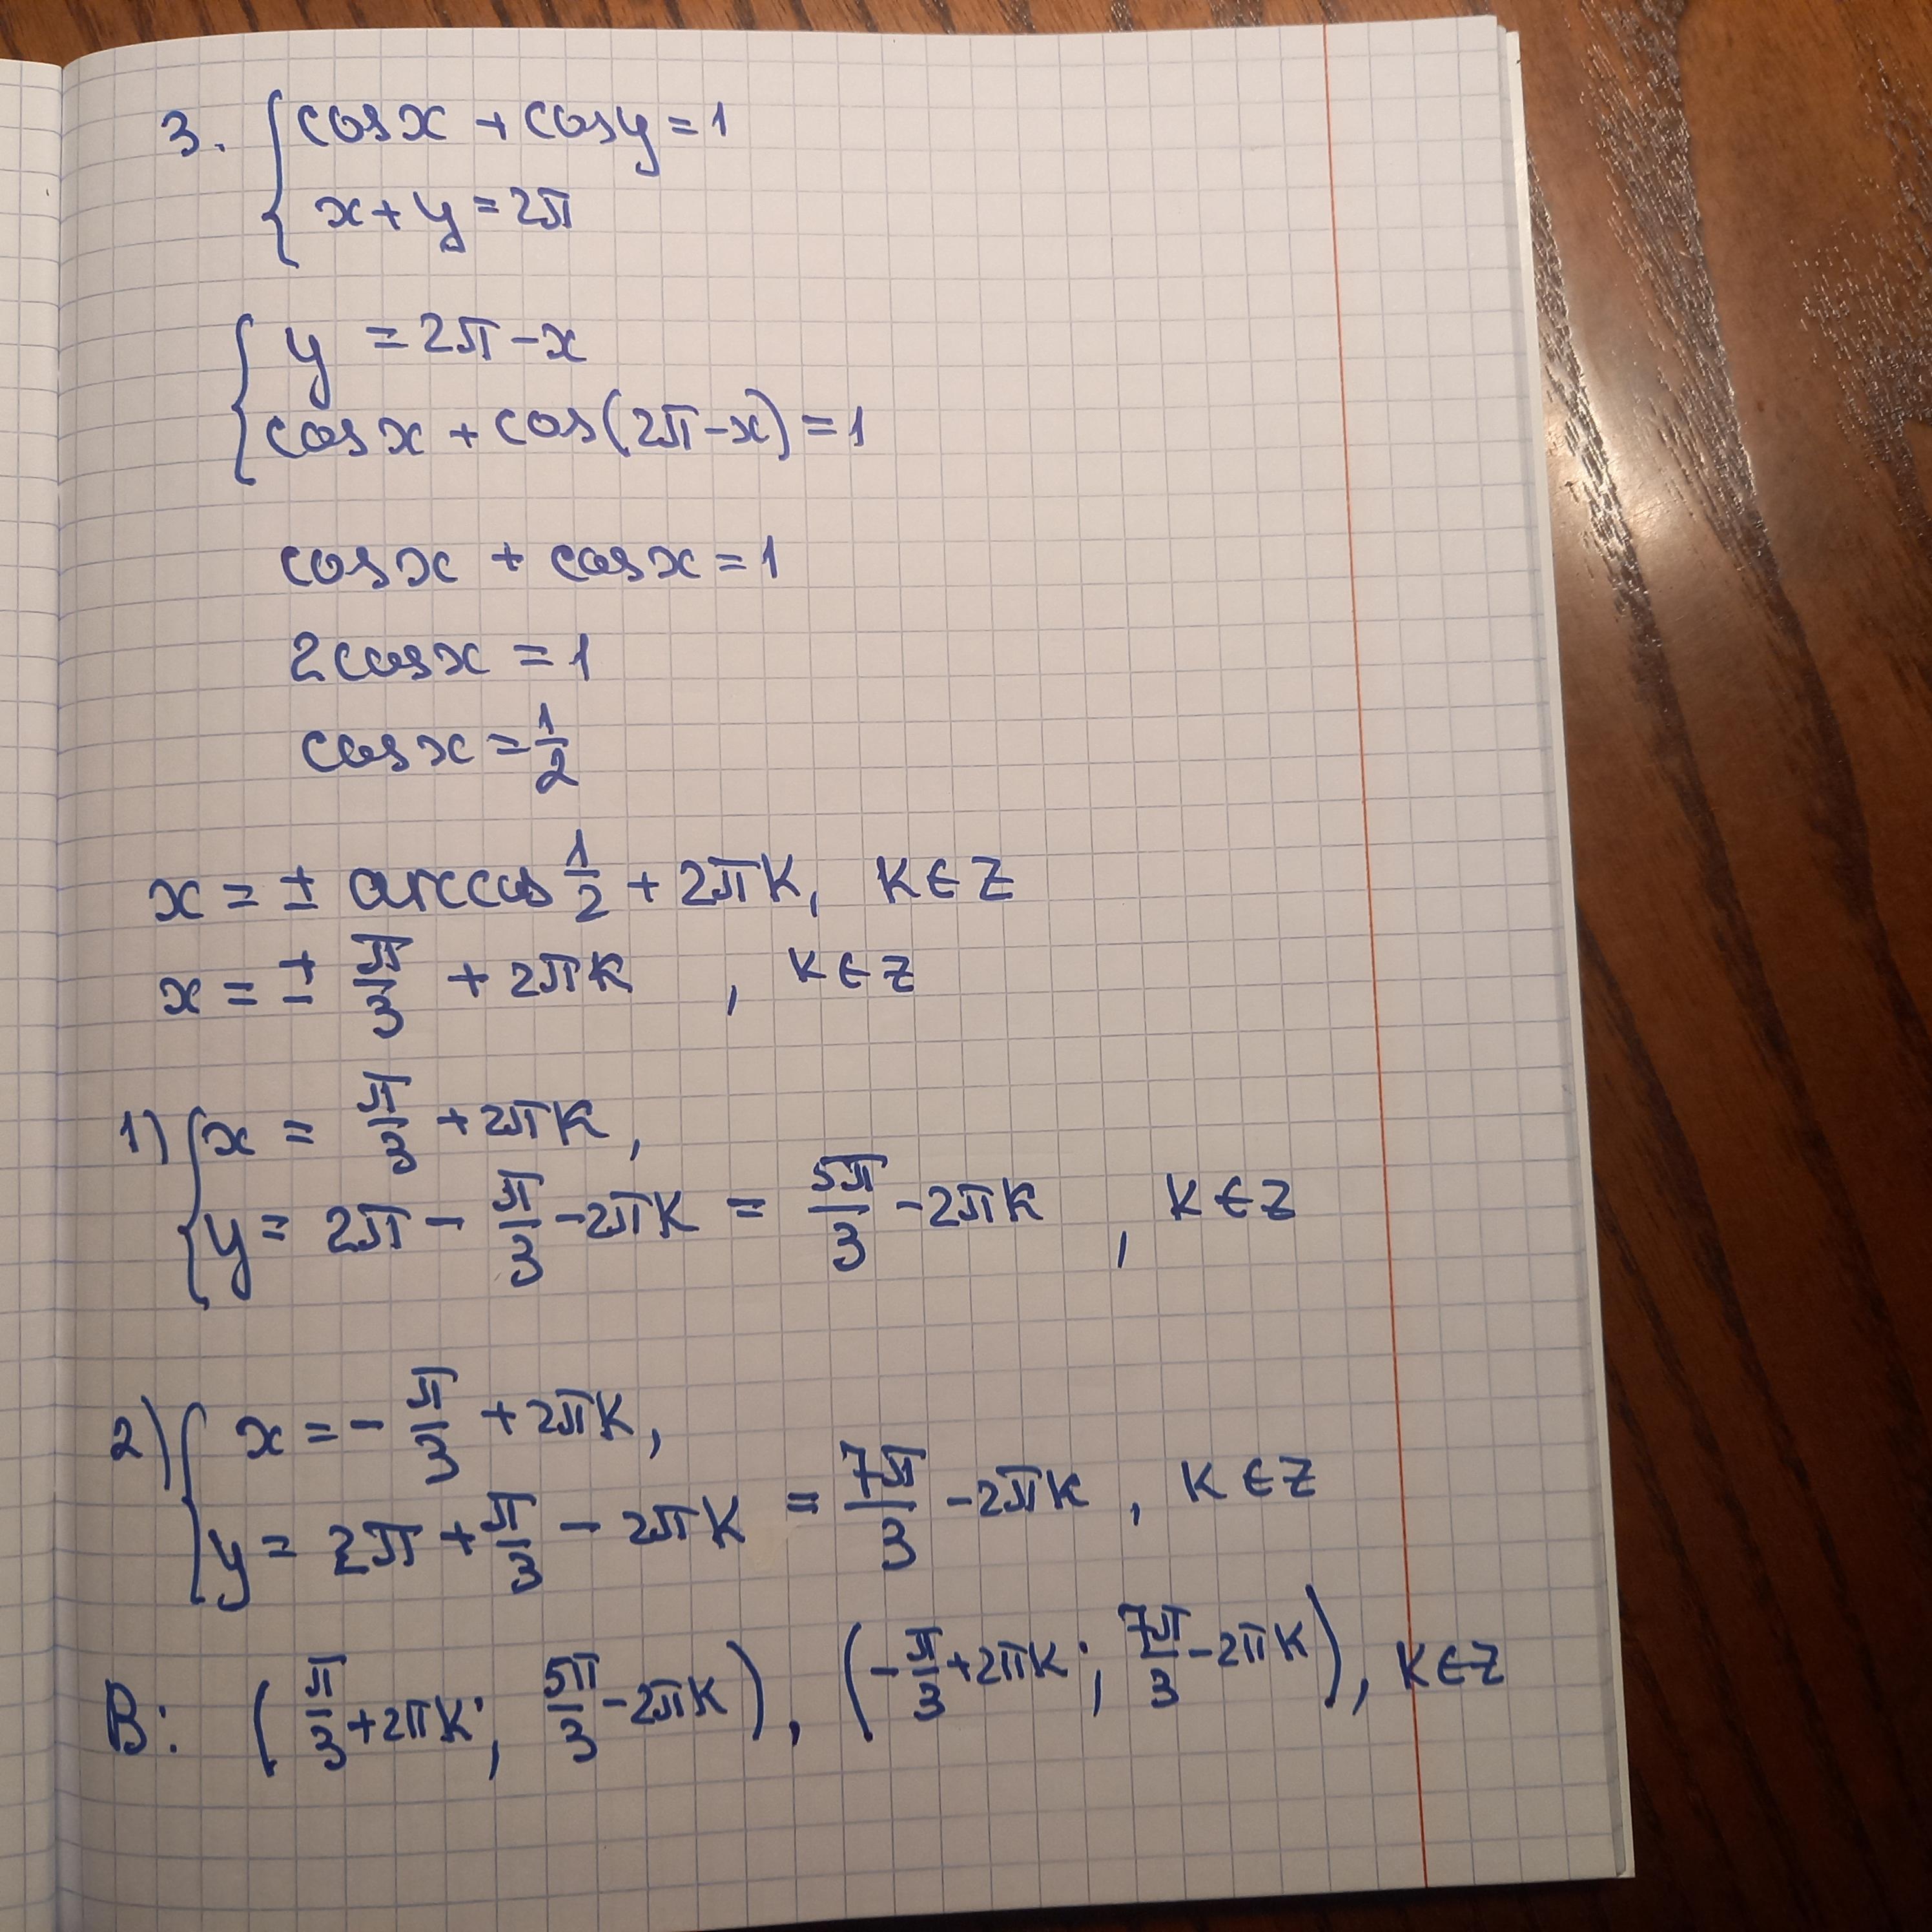 3. { cosx + cosy = 1
x + y = 2π
{ y = 2π - x
cosx + cos(2π - x) = 1
cosx + cosx = 1
2cosx = 1
cosx = 1/2
x = ± arccos 1/2 + 2πk, k ∈ Z
x = ± π/3 + 2πk , k ∈ Z
1) { x = π/3 + 2πk,
y = 2π - π/3 - 2πk = 5π/3 - 2πk , k ∈ Z
2) { x = - π/3 + 2πk,
y = 2π + π/3 - 2πk = 7π/3 - 2πk , k ∈ Z
В: (π/3 + 2πk; 5π/3 - 2πk), (-π/3 + 2πk; 7π/3 - 2πk), k ∈ Z